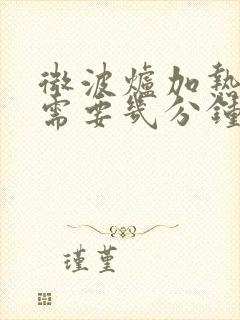 微波爐加熱
需要幾分鐘
瑾堇